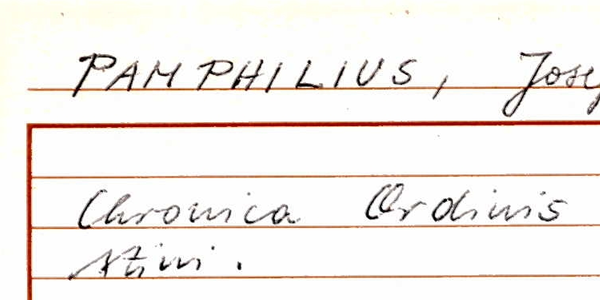 PAMPHILIUS, Jose
Chronica Ordinis
stini.